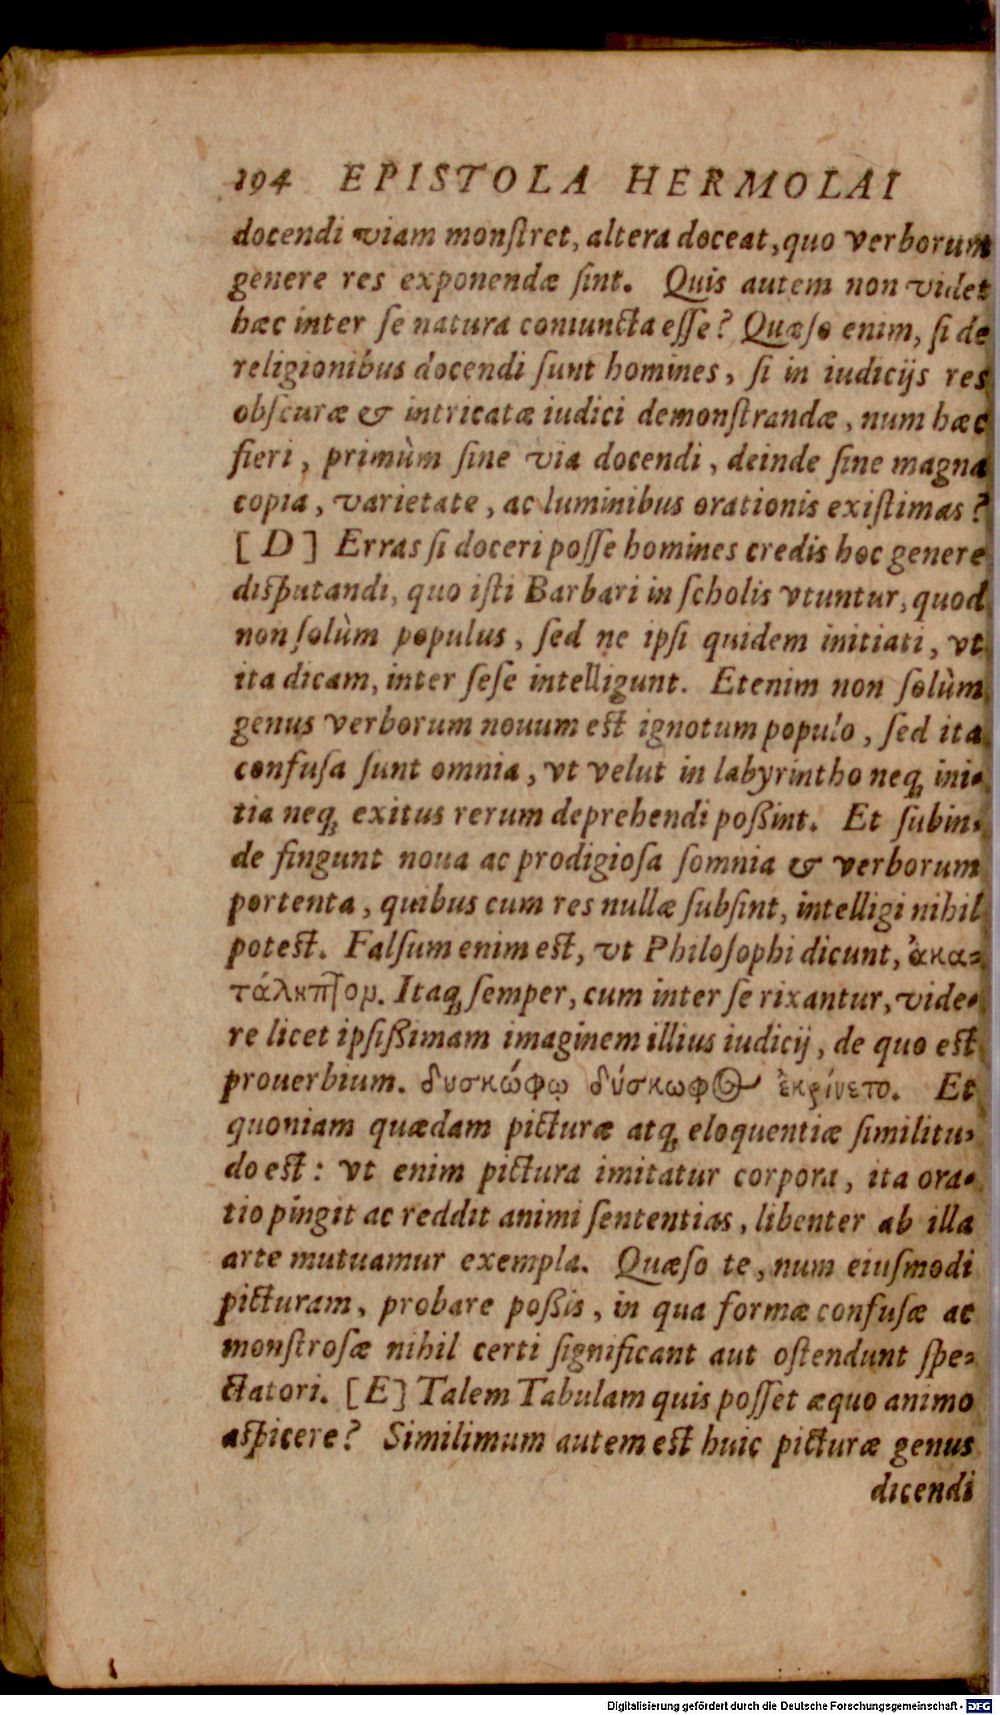 194 EPISTOLA HERMOLAI
docendi viam monſtret, altera doceat, quo verborum
genere res exponendæ ſint. Quis autem non videt
hæc inter ſe natura coniuncta eſſe? Quæſo enim, ſi de
religionibus docendi ſunt homines, ſi in iudicijs res
obſcuræ & intricatæ iudici demonſtrandæ, num hæc
fieri, primùm ſine via docendi, deinde ſine magna
copia, varietate, ac luminibus orationis exiſtimas?
[D] Erras ſi doceri poſſe homines credis hoc genere
diſputandi, quo iſti Barbari in ſcholis vtuntur, quod
non ſolùm populus, ſed ne ipſi quidem initiati, vt
ita dicam, inter ſeſe intelligunt. Etenim non ſolùm
genus verborum nouum eſt ignotum populo, ſed ita
confuſa ſunt omnia, vt velut in labyrintho neq; ini-
tia neq; exitus rerum deprehendi poßint. Et ſubin-
de fingunt noua ac prodigioſa ſomnia & verborum
portenta, quibus cum res nullæ ſubſint, intelligi nihil
poteſt. Falſum enim eſt, vt Philoſophi dicunt, ἀκα-
τάληπτον. Itaq; ſemper, cum inter ſe rixantur, vide-
re licet ipſißimam imaginem illius iudicij, de quo eſt
prouerbium. δυσκώφῳ δύσκωφος ἐκρίνετο. Et
quoniam quædam picturæ atq; eloquentiæ ſimilitu-
do eſt: vt enim pictura imitatur corpora, ita ora-
tio pingit ac reddit animi ſententias, libenter ab illa
arte mutuamur exempla. Quæſo te, num eiuſmodi
picturam, probare poßis, in qua formæ confuſæ ac
monſtroſæ nihil certi ſignificant aut oſtendunt ſpe-
ctatori. [E] Talem Tabulam quis poſſet æquo animo
aſpicere? Similimum autem eſt huic picturæ genus
dicendi
Digitalisierung gefördert durch die Deutsche Forschungsgemeinschaft - DFG